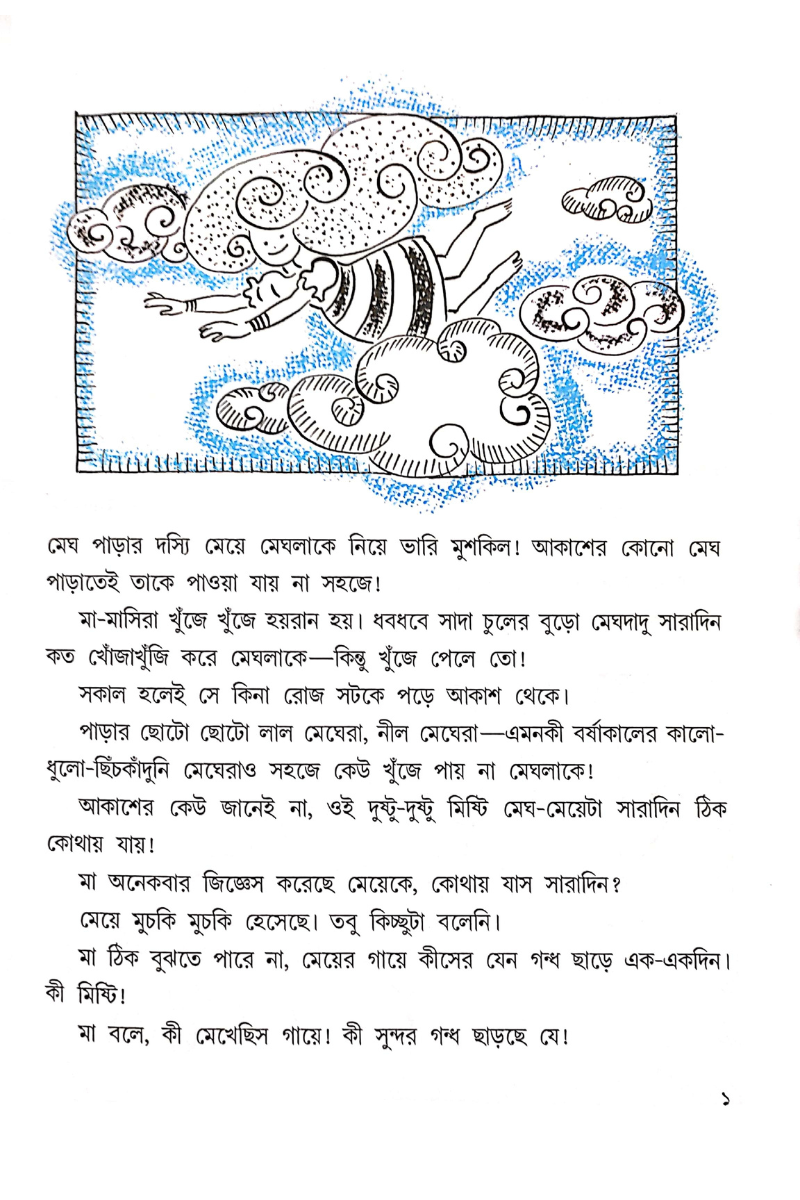 মেঘ পাড়ার দস্যি মেয়ে মেঘলাকে নিয়ে ভারি মুশকিল! আকাশের কোনো মেঘ
পাড়াতেই তাকে পাওয়া যায় না সহজে!
মা-মাসিরা খুঁজে খুঁজে হয়রান হয়। ধবধবে সাদা চুলের বুড়ো মেঘদাদু সারাদিন
কত খোঁজাখুঁজি করে মেঘলাকে—কিন্তু খুঁজে পেলে তো!
সকাল হলেই সে কিনা রোজ সটকে পড়ে আকাশ থেকে।
পাড়ার ছোটো ছোটো লাল মেঘেরা, নীল মেঘেরা—এমনকী বর্ষাকালের কালো-
ধুলো-ছিঁচকাঁদুনি মেঘেরাও সহজে কেউ খুঁজে পায় না মেঘলাকে!
আকাশের কেউ জানেই না, ওই দুষ্টু-দুষ্টু মিষ্টি মেঘ-মেয়েটা সারাদিন ঠিক
কোথায় যায়!
মা অনেকবার জিজ্ঞেস করেছে মেয়েকে, কোথায় যাস সারাদিন?
মেয়ে মুচকি মুচকি হেসেছে। তবু কিচ্ছুটা বলেনি।
মা ঠিক বুঝতে পারে না, মেয়ের গায়ে কীসের যেন গন্ধ ছাড়ে এক-একদিন।
কী মিষ্টি!
মা বলে, কী মেখেছিস গায়ে! কী সুন্দর গন্ধ ছাড়ছে যে!
১